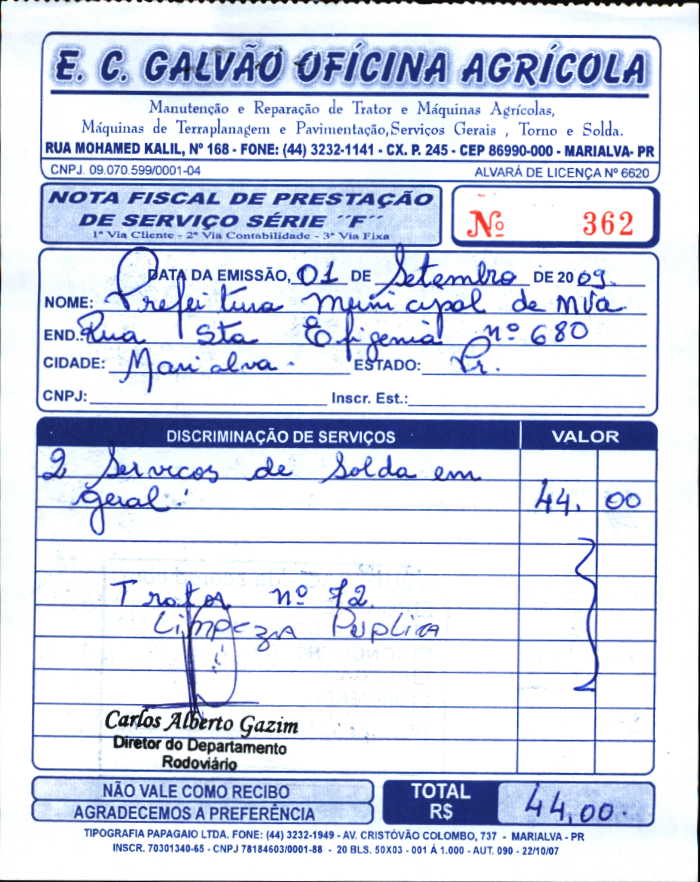 E. C. GALVÃO OFÍCINA AGRÍCOLA
Manutenção e Reparação de Trator e Máquinas Agrícolas,
Máquinas de Terraplanagem e Pavimentação,Serviços Gerais , Torno e Solda.
RUA MOHAMED KALIL, Nº 168 - FONE: (44) 3232-1141 - CX. P. 245 - CEP 86990-000 - MARIALVA- PR
CNPJ. 09.070.599/0001-04 ALVARÁ DE LICENÇA Nº 6620
NOTA FISCAL DE PRESTAÇÃO
DE SERVIÇO SÉRIE ´´F´´
1ª Via Cliente - 2ª Via Contabilidade - 3ª Via Fixa
Nº 362
DATA DA EMISSÃO, 01 DE Setembro DE 2009.
NOME: Prefeitura Municipal de MVa
END.: Rua Sta Efigenia nº 680
CIDADE: Marialva. ESTADO: Pr.
CNPJ: Inscr. Est.:
DISCRIMINAÇÃO DE SERVIÇOS VALOR
2 Servicos de Solda em
geral. 44,00
Trator nº 72.
LIMPEZA PUPLICA
Carlos Alberto Gazim
Diretor do Departamento
Rodoviário
NÃO VALE COMO RECIBO
AGRADECEMOS A PREFERÊNCIA
TOTAL
R$ 44,00.
TIPOGRAFIA PAPAGAIO LTDA. FONE: (44) 3232-1949 - AV. CRISTÓVÃO COLOMBO, 737 - MARIALVA - PR
INSCR. 70301340-65 - CNPJ 78184603/0001-88 - 20 BLS. 50X03 - 001 Á 1.000 - AUT. 090 - 22/10/07